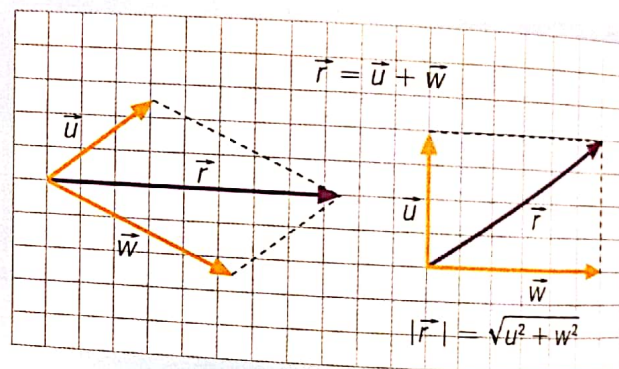 r⃗ = u⃗ + w⃗
u⃗
r⃗
w⃗
u⃗
r⃗
w⃗
|r⃗| = √(u² + w²)